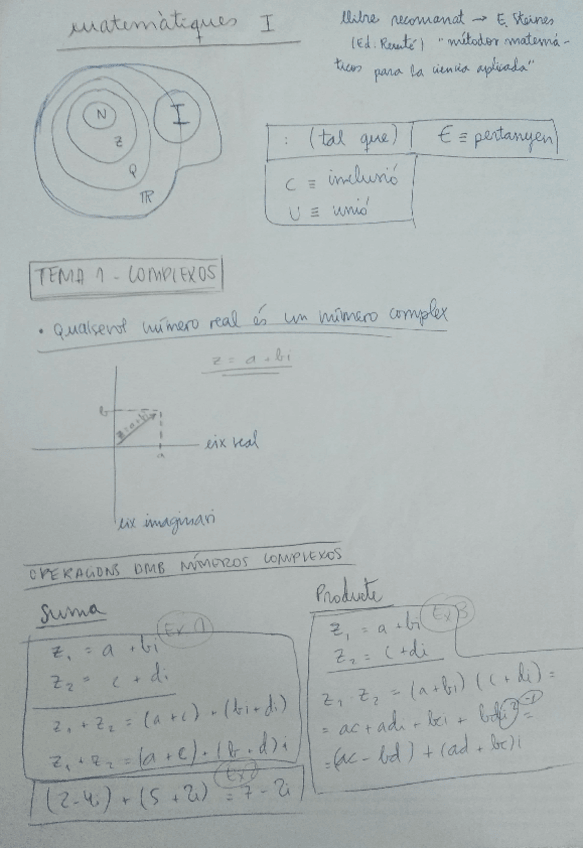 matemàtiques I
llibre recomanat → E. Steiner
(Ed. Reverté) "métodos matemá-
ticos para la ciencia aplicada"
N
Z
Q
IR
I
: (tal que)
∈ ≡ pertanyen
⊂ ≡ inclusió
∪ ≡ unió
TEMA 1 - COMPLEXOS
• Qualsevol número real és un número complex
z = a + bi
b
z=a+bi
a
eix real
eix imaginari
OPERACIONS AMB NÚMEROS COMPLEXOS
Suma
Ex 1
z₁ = a + bi
z₂ = c + di
z₁ + z₂ = (a+c) + (bi+di)
z₁ + z₂ = (a+c) + (b+d)i
Ex 2
(2-4i) + (5+2i) = 7-2i
Producte
Ex 3
z₁ = a + bi
z₂ = c + di
z₁ z₂ = (a+bi) (c+di) =
= ac + adi + bci + bdi² =
-1
= (ac - bd) + (ad + bc)i